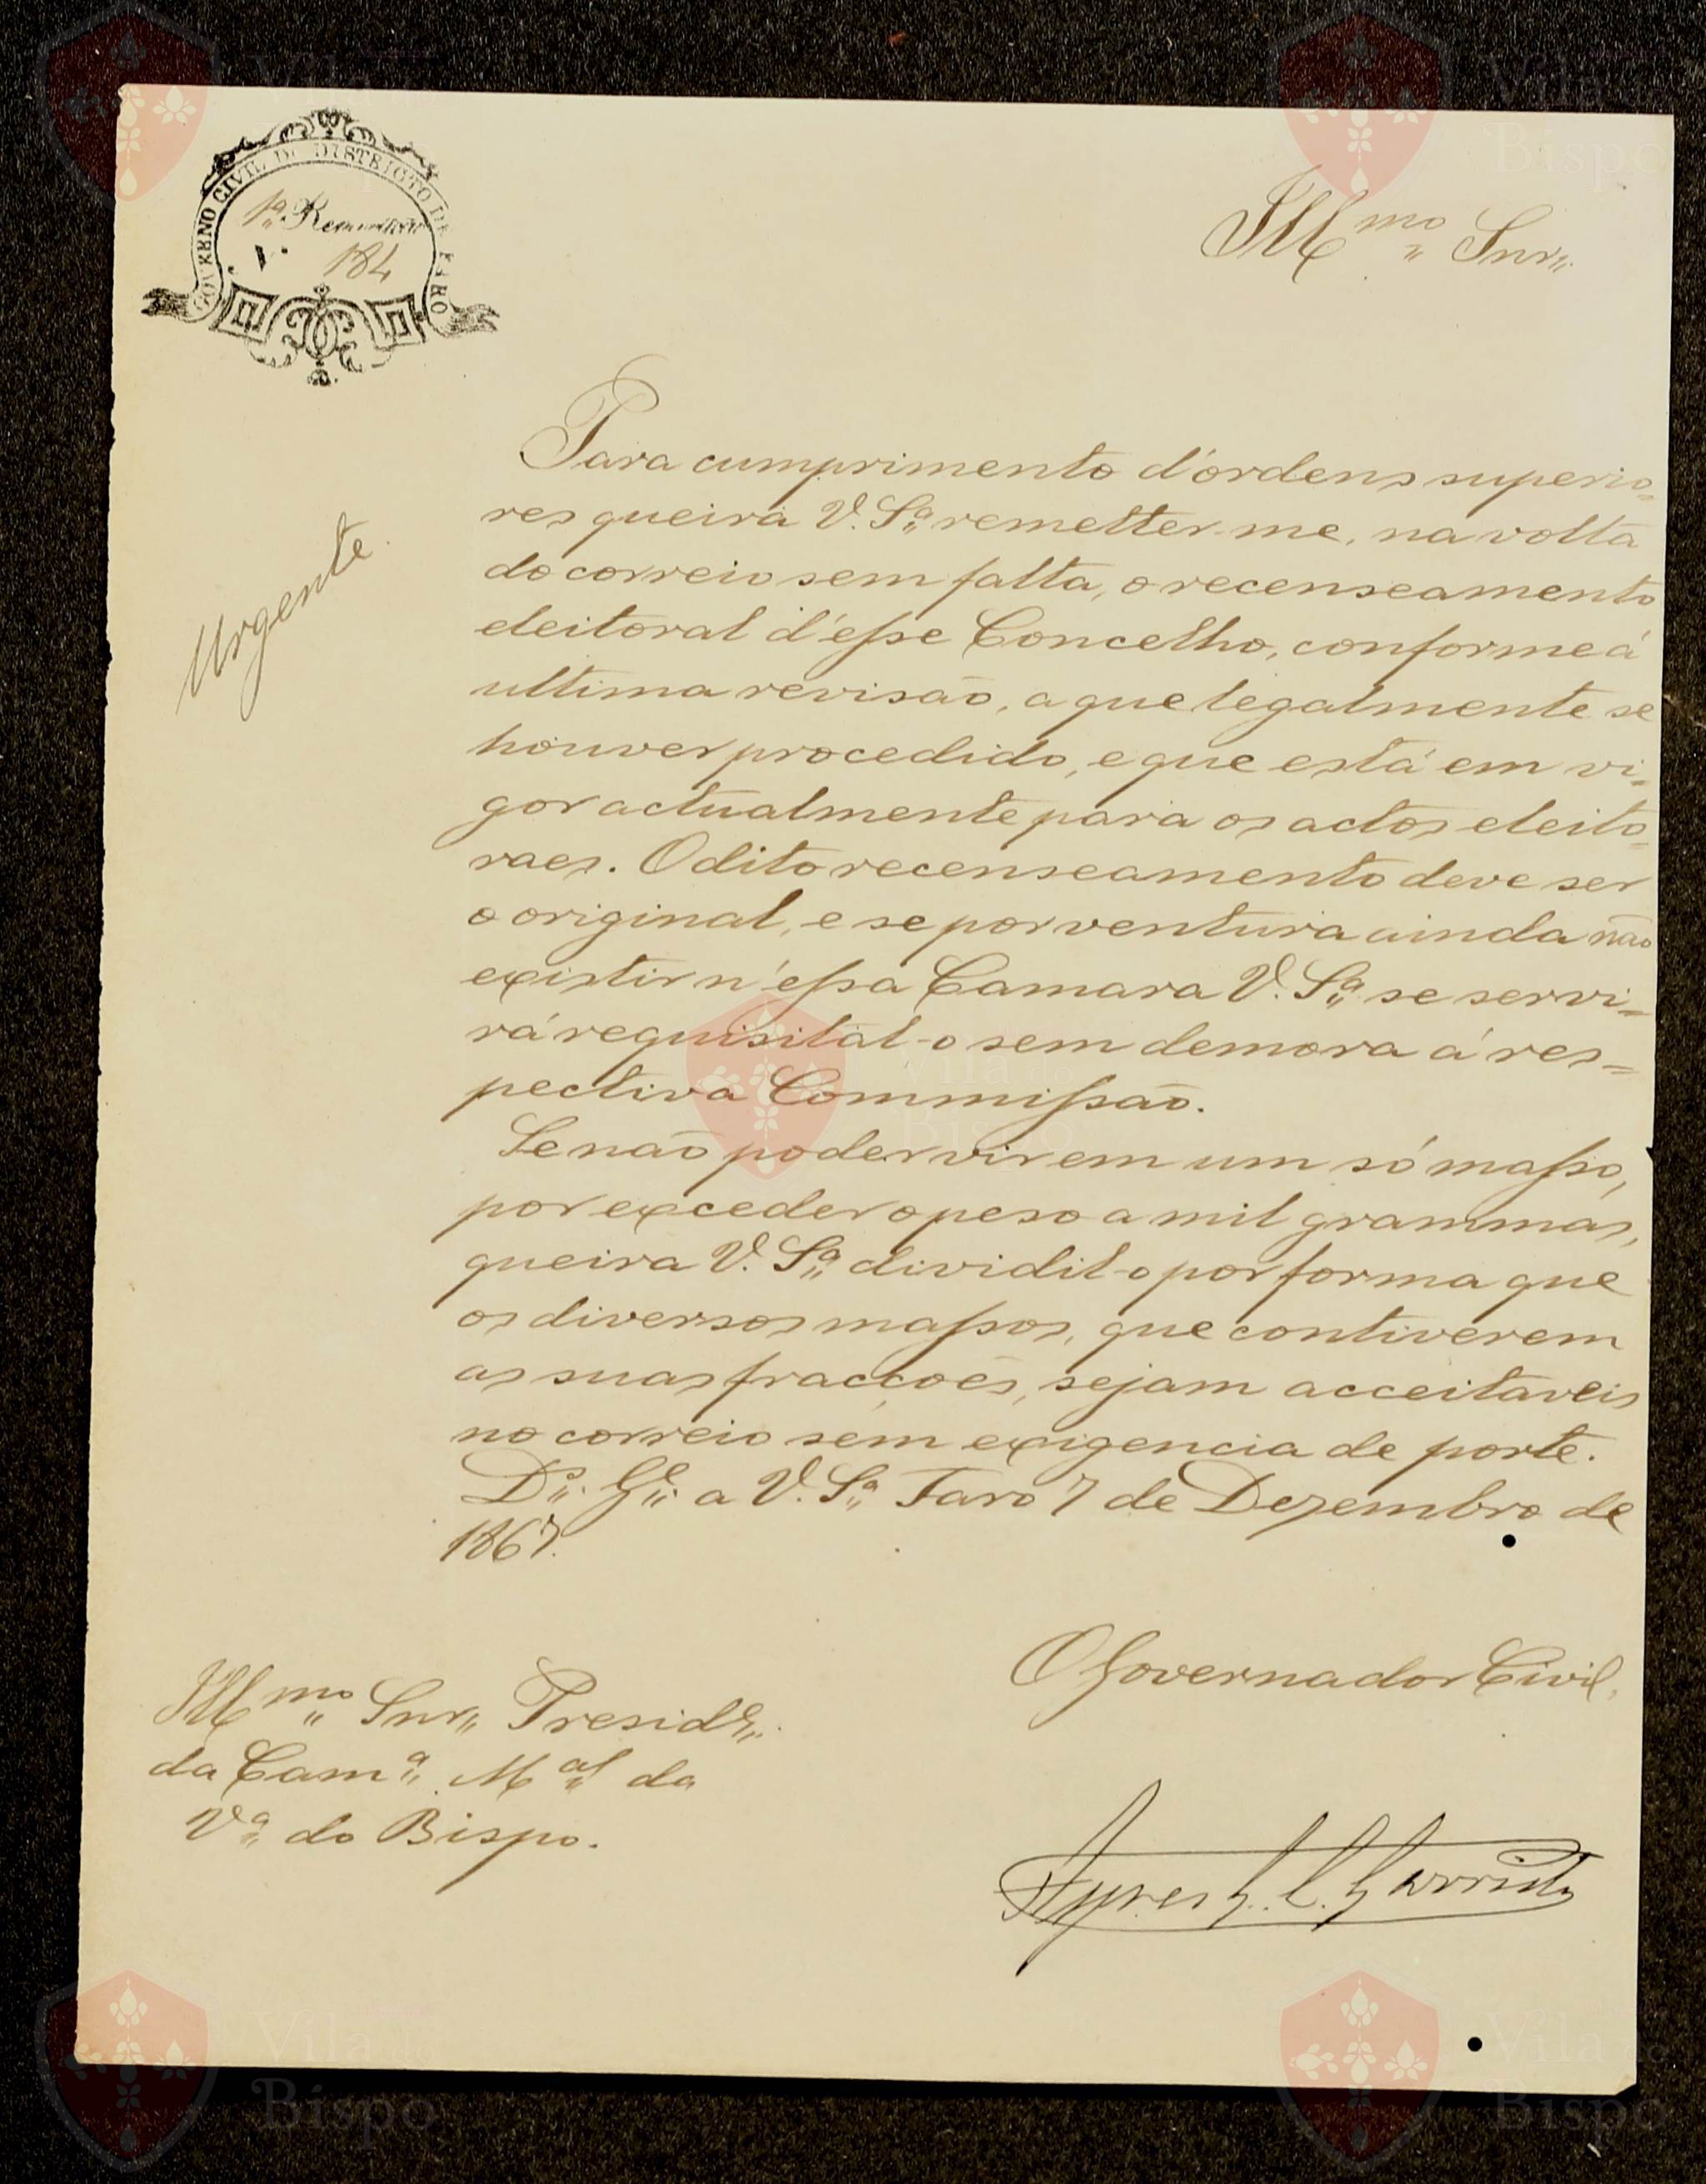 GOVERNO CIVIL DO DISTRICTO DE FARO
1ª Repartição
Nº 184
Illmo Snr.
Urgente.
Para cumprimento d'ordens superio=
res queira V. Sª remetter-me, na volta
do correio sem falta, o recenseamento
eleitoral d'esse Concelho, conforme á
ultima revisão, a que legalmente se
houver procedido, e que está em vi=
gor actualmente para os actos eleito=
raes. O dito recenseamento deve ser
o original, e se porventura ainda não
existir n'essa Camara V. Sª se servi=
rá requisital-o sem demora á res=
pectiva Commissão.
Se não poder vir em um só masso,
por exceder o peso a mil grammas,
queira V. Sª dividil-o por forma que
os diversos massos, que contiverem
as suas fracções, sejam acceitaveis
no correio sem exigencia de porte.
Ds. Ge. a V. Sª Faro 7 de Dezembro de
1867.
O Governador Civil,
Illmo Snr. Preside.
da Camª Mal da
Vª do Bispo.
Vila do
Bispo